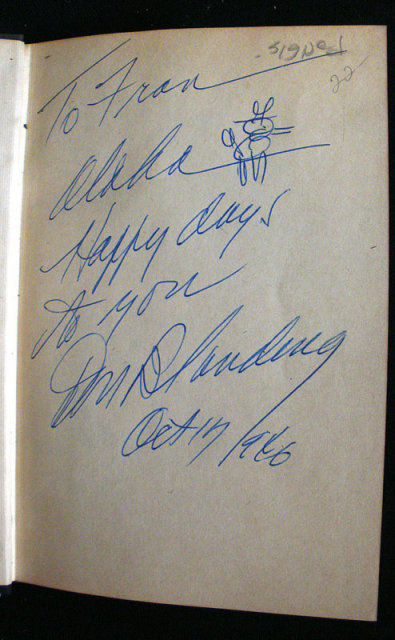 SIGNED
22
To Fran
Aloha
Happy days
to you
Don Blanding
Oct 17 1946